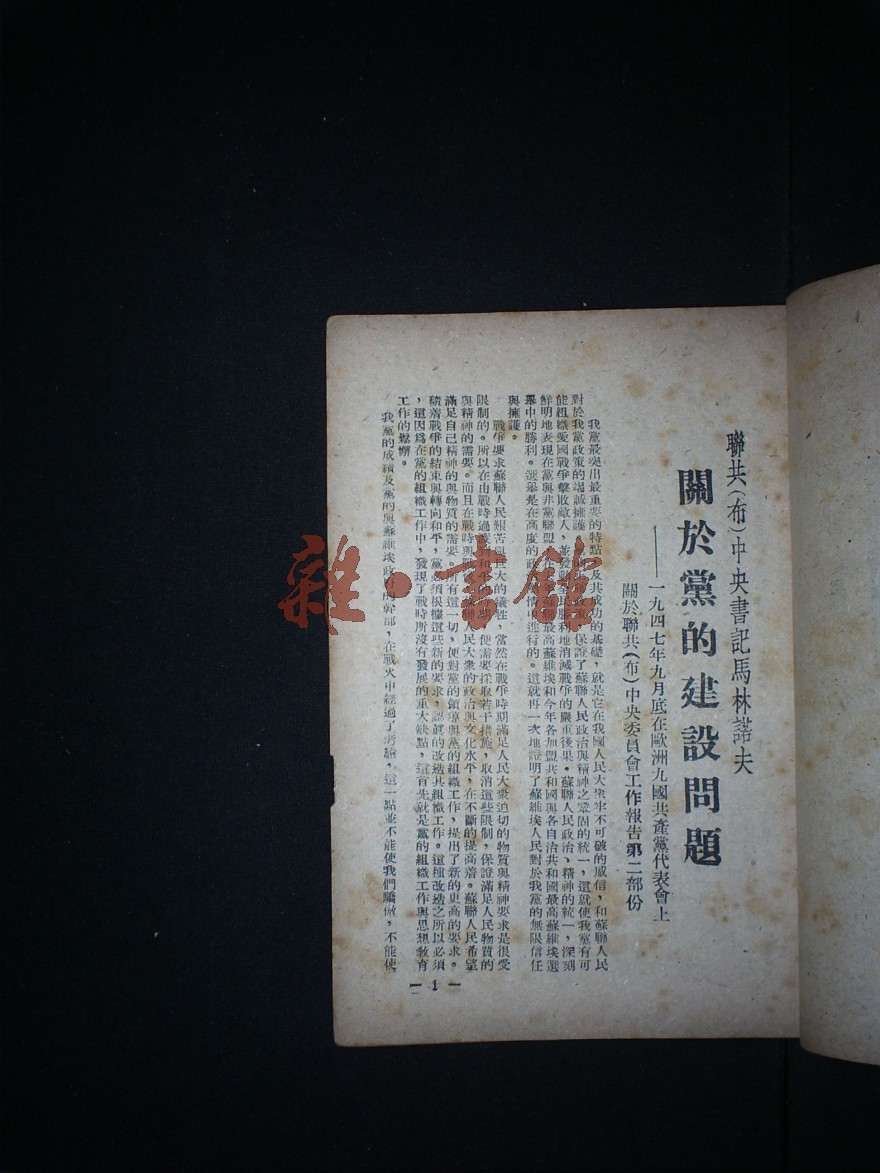 聯共(布)中央書記馬林諾夫
關於黨的建設問題
——一九四七年九月底在歐洲九國共產黨代表會上
關於聯共(布)中央委員會工作報告第二部份
我黨最突出最重要的特點及其成功的基礎，就是它在我國人民大衆牢不可破的威信，和蘇聯人民
對於我黨政策的竭誠擁護。保證了蘇聯人民政治與精神之鞏固的統一，這就使我黨有可
能組織愛國戰爭擊敗敵人，並發動全民勝利地消滅戰爭的嚴重後果。蘇聯人民政治、精神的統一，深刻
鮮明地表現在黨與非黨聯盟在蘇聯最高蘇維埃和今年各加盟共和國與各自治共和國最高蘇維埃選
舉中的勝利。選舉是在高度的政治熱情中進行的。這就再一次地證明了蘇維埃人民對於我黨的無限信任
與擁護。
戰爭要求蘇聯人民艱苦與巨大的犧牲，當然在戰爭時期滿足人民大衆迫切的物質與精神要求是很受
限制的。所以在由戰時過渡到和平的時期，便需要採取若干措施，取消這些限制，保證滿足人民物質的
與精神的需要。而且在戰時與戰後蘇聯人民大衆的政治與文化水平，在不斷的提高着。蘇聯人民希望
滿足自己精神的與物質的需要。所有這一切，便對黨的領導與黨的組織工作，提出了新的更高的要求。
隨着戰爭的結束與轉向和平，黨必須根據這些新的要求，認眞的改造其組織工作。這種改造之所以必須
，還因爲在黨的組織工作中，發現了戰時所沒有發展的重大缺點，這首先就是黨的組織工作與思想教育
工作的鬆懈。
我黨的成績及黨的與蘇維埃政府的幹部，在戰火中經過了考驗，這一點並不能使我們驕傲，不能使
— 1 —
雜·書館